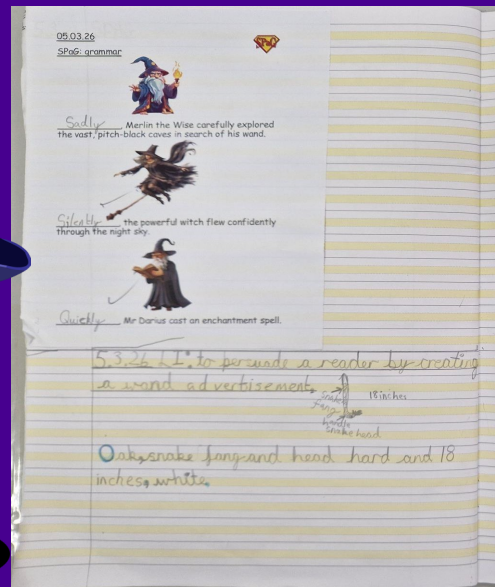 05.03.26
SPaG
SPaG: grammar
Sadly Merlin the Wise carefully explored
the vast, pitch-black caves in search of his wand.
Silently the powerful witch flew confidently
through the night sky.
Quickly Mr Darius cast an enchantment spell.
5.3.26 LI: to persuade a reader by creating
a wand advertisement.
snake
fang
18 inches
handle
snake head
Oak, snake fang and head hard and 18
inches, white.